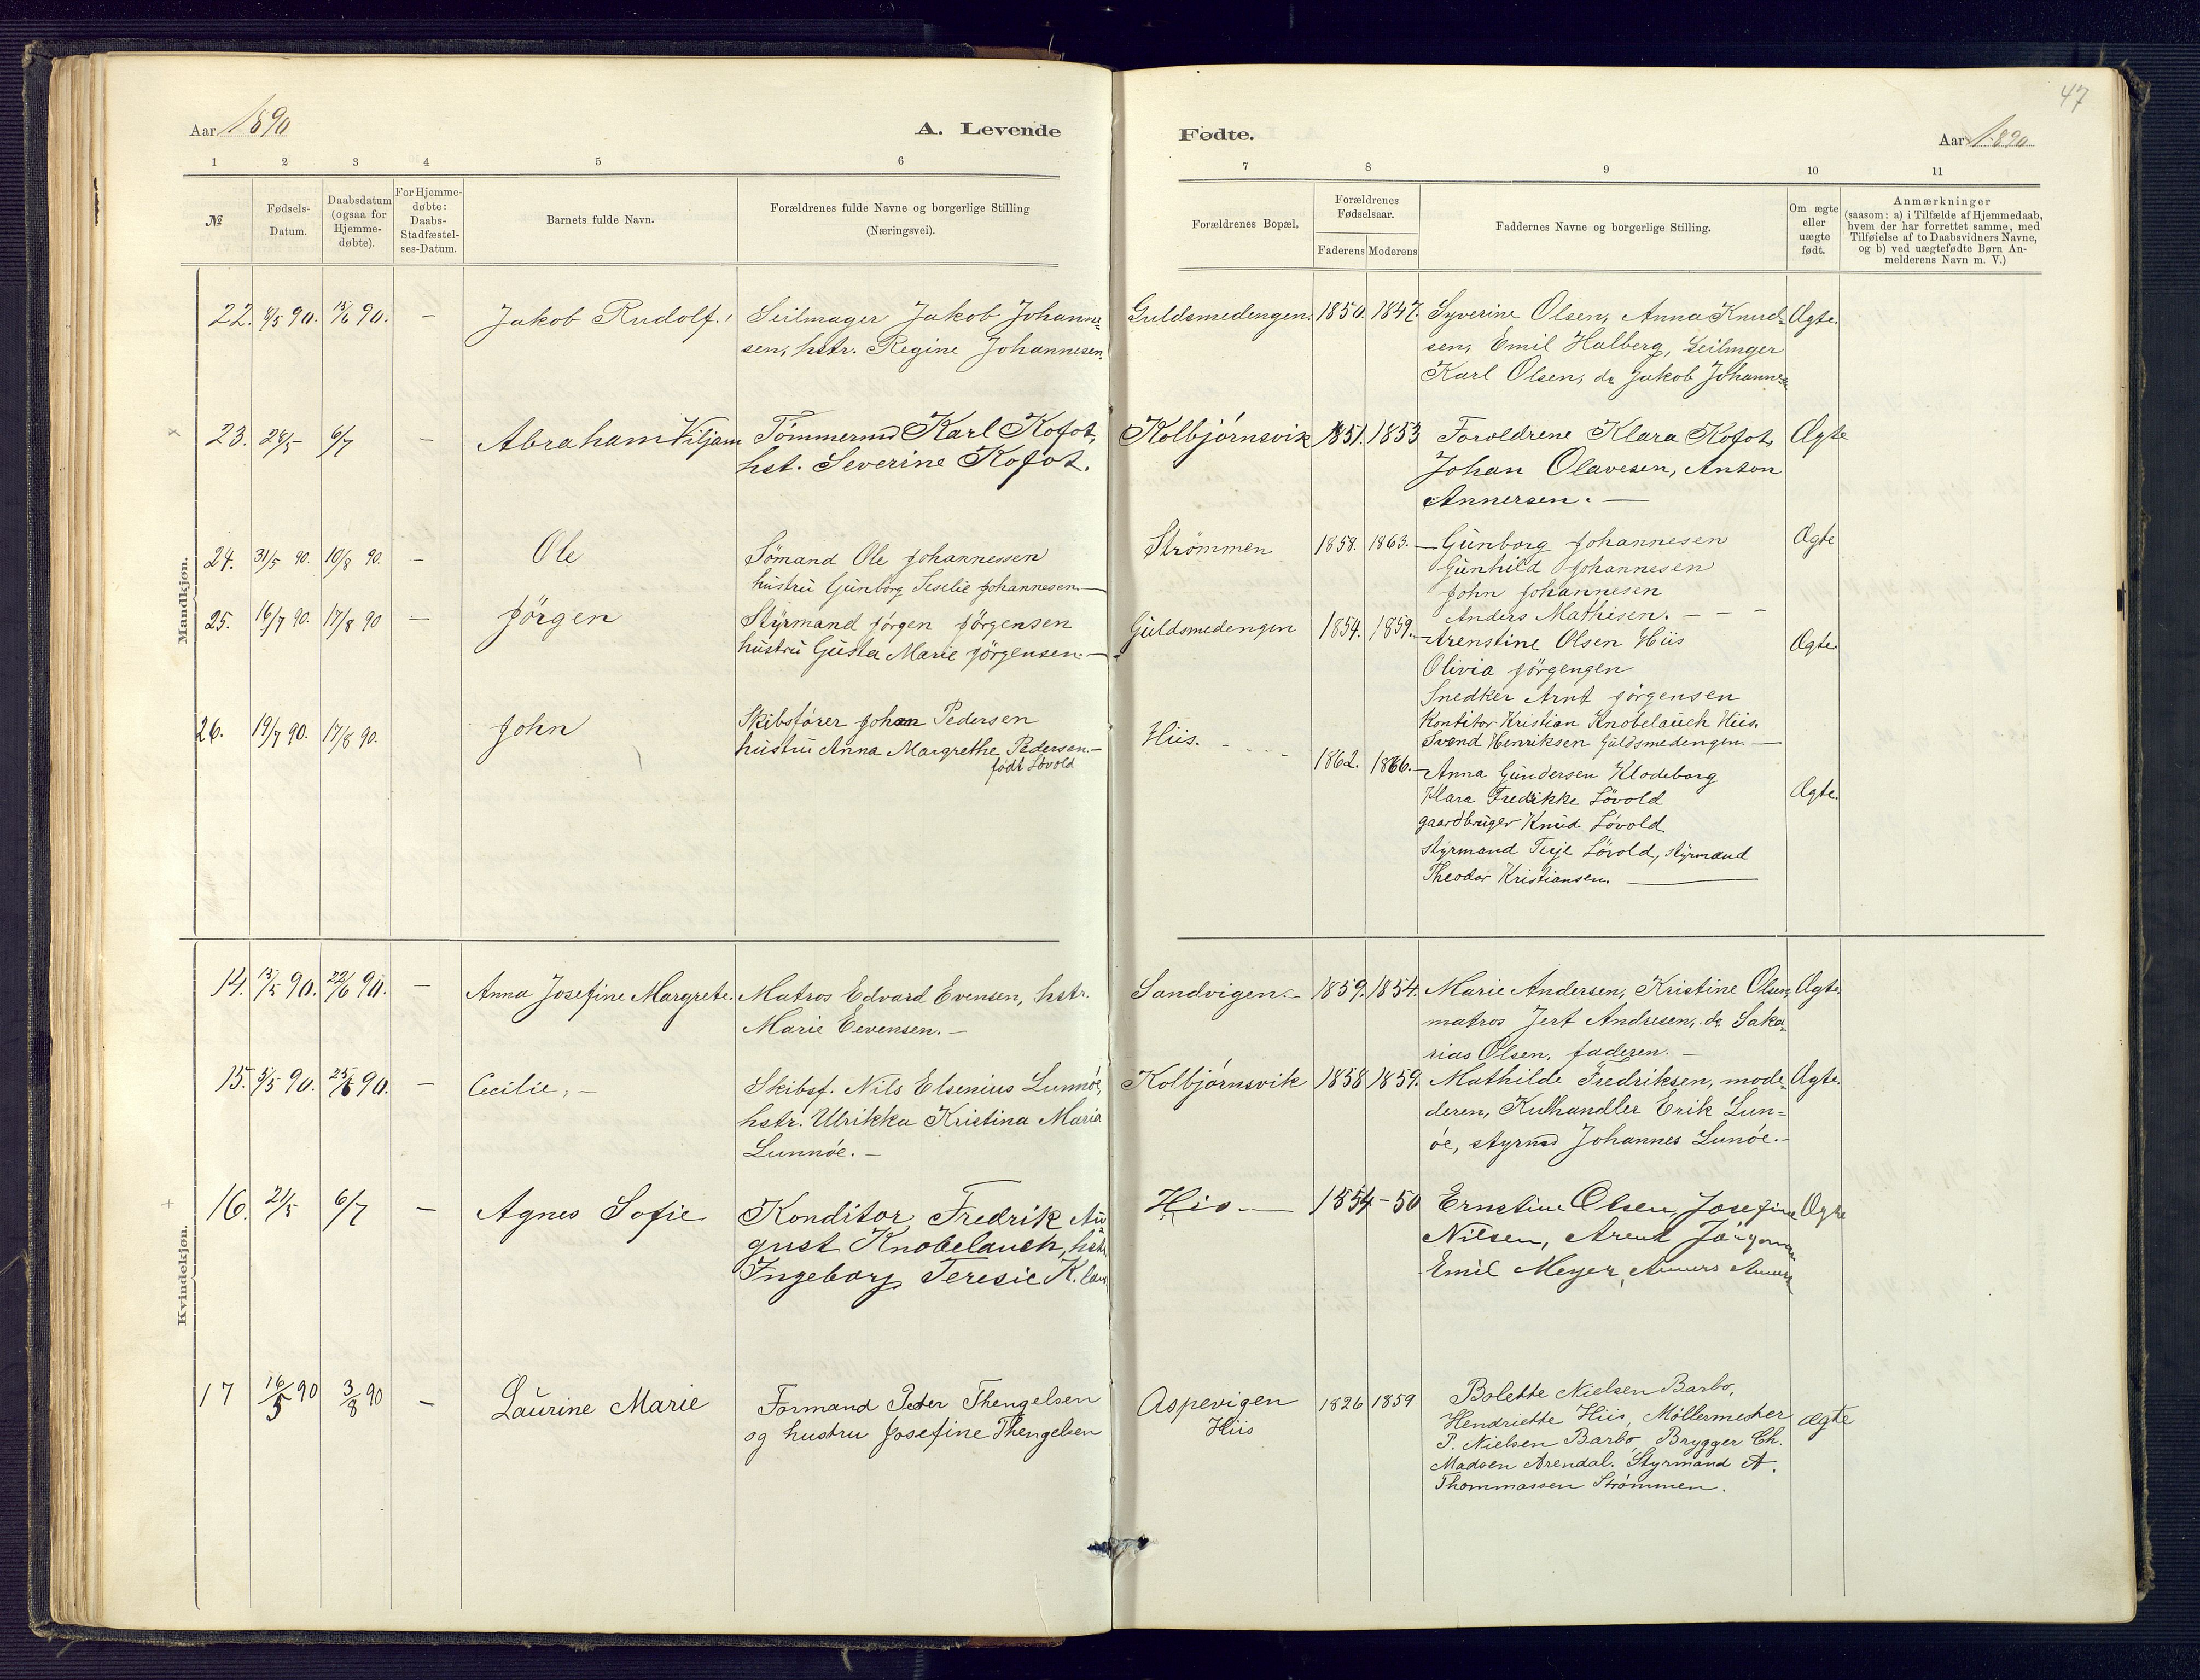 47
Aar 1890
A. Levende
Fødte.
Aar 1890
1 2 3 4 5 6 7 8 9 10 11
№
Fødsels-
Datum.
Daabsdatum
(ogsaa for
Hjemme-
døbte).
For Hjemme-
døbte:
Daabs-
Stadfæstel-
ses-Datum.
Barnets fulde Navn.
Forældrenes fulde Navne og borgerlige Stilling
(Næringsvei).
Forældrenes Bopæl.
Forældrenes
Fødselsaar.
Faderens Moderens
Faddernes Navne og borgerlige Stilling.
Om ægte
eller
uægte
født.
Anmærkninger
(saasom: a) i Tilfælde af Hjemmedaab,
hvem der har forrettet samme, med
Tilføielse af to Daabsvidners Navne,
og b) ved uægtefødte Børn An-
melderens Navn m. V.)
Mandkjøn.
22. 8/5 90. 15/6 90. - Jakob Rudolf. Seilmager Jakob Johanne-
sen, hstr. Regine Johannesen.
Guldsmedengen. 1850. 1847. Syverine Olsen, Anna Knud- Ægte.
sen, Emil Halberg, Seilmger
Karl Olsen, do Jakob Johannesen
23. 28/5 6/7 - Abraham Viljam Tömmermd Karl Kofot,
hst. Severine Kofot.
Kolbjórnsvik 1851. 1853 Foroldrene Klara Kofot, Ægte
Johan Olavesen, Anton
Annersen. -
24. 31/5 90. 10/8 90. - Ole Sömand Ole Johannessen
hustru Gunborg Seselie Johannesen. -
Strømmen 1858. 1863. - Gunborg Johannesen Ægte
Gunhild Johannesen
John Johannesen
Anders Mathisen. - - -
25. 16/7 90. 17/8 90 - Jörgen Styrmand Jörgen Jörgensen
hustru Gusta Marie Jörgensen. -
Guldsmedengen 1854. 1859. - Arenstine Olsen Hiis Ægte.
Olivia Jörgengen
Snedker Arnt Jörgensen
Kontitor Kristian Knobelauch Hiis.
Svend Henriksen Guldsmedengen. -
26. 19/7 90. 17/8 90. John Skibsfører John Pedersen
hustru Anna Margrethe Pedersen. -
födt Lövold
Hiis. - - - - 1862. 1866. - Anna Gundersen Klodeborg
Klara Fredrikke Lövold Ægte.
gaardbruger Knud Lövold
styrmand Terje Lövold, styrmand
Theodor Kristiansen. -
Kvindekjøn.
14. 13/5 90. 22/6 90. - Anna Josefine Margrete. Matros Edvard Evensen, hstr.
Marie Eevensen. -
Sandvigen. - 1859. 1854. Marie Andersen, Kristine Olsen, Ægte.
matros Jert Andresen, do Saka-
rias Olsen, faderen. -
15. 5/5 90. 25/6 90. - Cecilie, - Skibsf. Nils Elsenius Lunnóe,
hstr. Ulrikka Kristina Maria
Lunnóe. -
Kolbjórnsvik 1858 1859. Mathilde Fredriksen, mode- Ægte.
deren, Kulhandler Erik Lun-
óe, styrmd Johannes Lunóe. -
16. 21/5 6/7 - Agnes Sofie Konditor Fredrik Au-
gust Knobelauch, hst
Ingeborg Teresie K.
His - 1854 - 50 Ernstine Olsen, Josefine Ægte
Nilsen, Arent Jörgensen
Emil Meyer,
17 16/5 90 3/8 90 - Laurine Marie Formand Peter Thengelsen
og hustru Josefine Thengelsen
Aspevigen
Hiis
1826 1859 Bolette Nielsen Barbo,
Hendriette Hiis, Möllermester Ægte
P. Nielsen Barbo, Brygger Ch.
Madsen Arendal. Styrmand A.
Thommassen Strömmen.